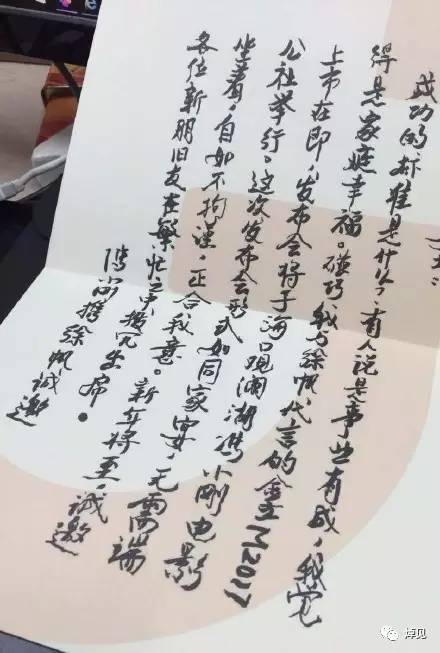 成功的标准是什么，有人说是事业有成，我觉
得是家庭幸福。碰巧，我与徐帆代言的金立M2017
上市在即，发布会将于海口观澜湖冯小刚电影
公社举行。这次发布会形式如同家宴，无需端
坐着，自如不拘谨，正合我意。新年将至，诚邀
各位新朋旧友在繁忙之中拨冗出席。
冯小刚携徐帆诚邀
悼见